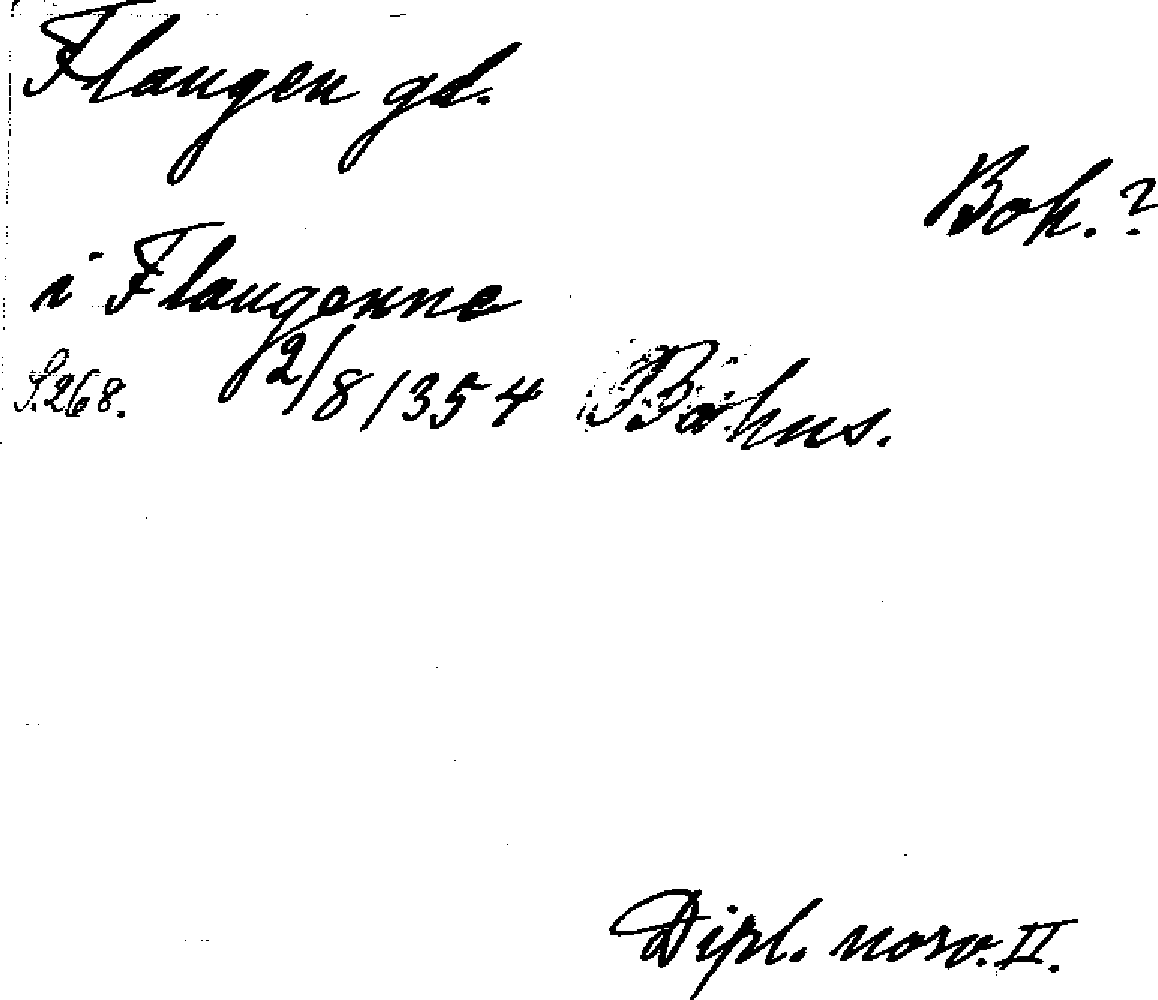 Flaugen gd.
Boh.?
i Flaugenne
S.268. 2/8 1354 Båhus.
Dipl. norv. II.